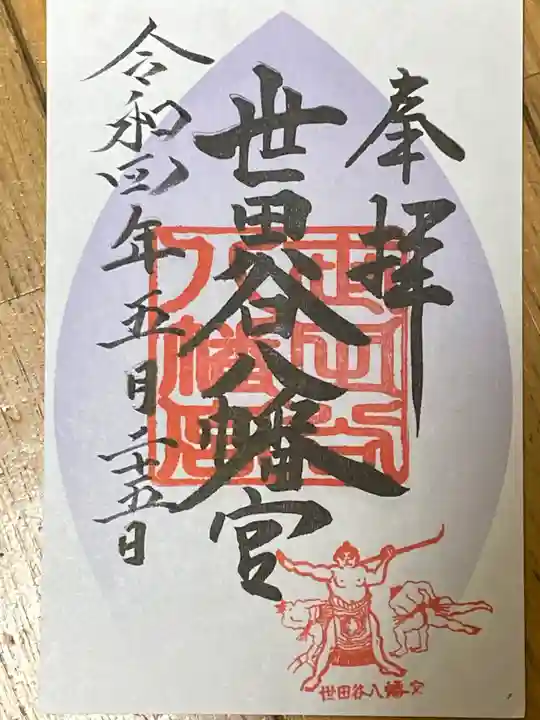 奉拝
世田谷八幡宮
令和四年五月二十五日
世田谷八幡宮
世田谷八幡宮